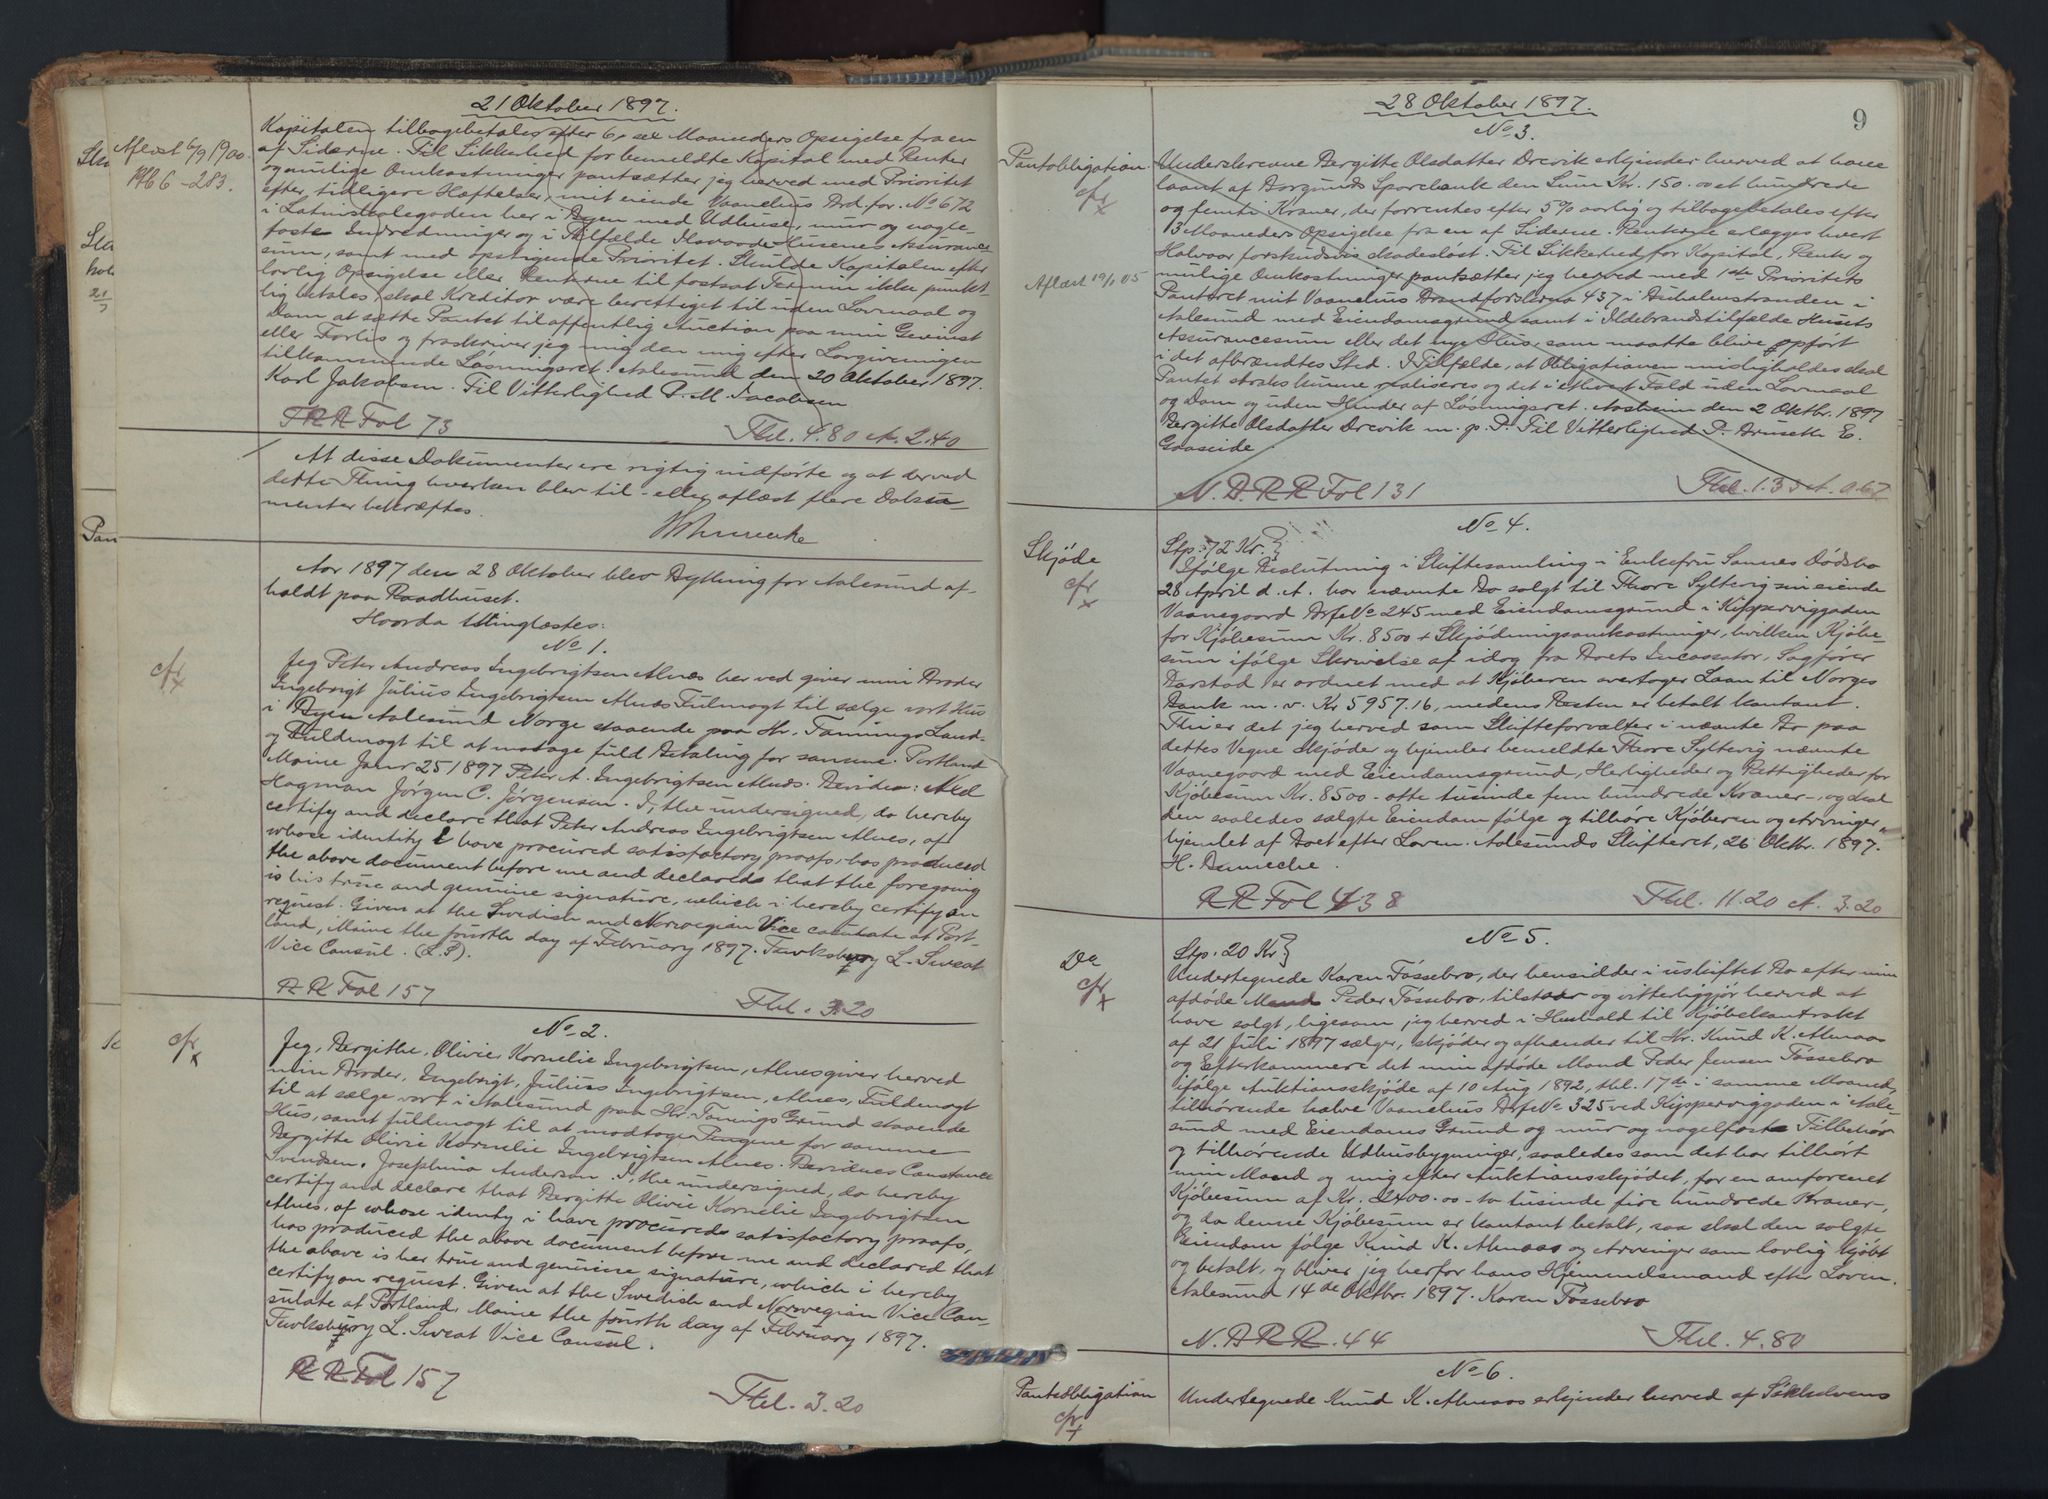 21 Oktober 1897.
Aflæst 6/9 1900.
Kapitalen tilbagebetales efter 6, sex Maaneders Opsigelse fra en
af Siderne. Til Sikkerhed for bemeldte Kapital med Renter
og mulige Omkostninger pantsætter jeg herved med Prioritet
efter tidligere Heftelser, mit eiende Vaanehus Brd. for. No 672
i Latinskolegaden her i Byen med Udhuse, mur og nagle-
faste Indredninger og i Tilfælde Ildsvaade Husenes Assurance
sum, samt med opstigende Prioritet. Skulde Kapitalen efter
lovlig Opsigelse eller Renterne til fastsat Termin ikke punkt-
lig betales, skal Kreditor være berettiget til uden Lovmaal og
Dom at sætte Pantet til offentlig Auction paa min Gevinst
eller Forlis og fraskriver jeg mig den mig efter Lovgivningen
tilkommende Løsningsret. Aalesund den 20 Oktober 1897.
Karl Jakobsen. Til Vitterlighed P. M. Jacobsen
Fol 73 Thl. 4.80 A. 2.40
At disse Dokumenter ere rigtig indførte og at der ved
dette Thing hverken blev til- eller aflæst flere Doku-
menter bekræftes.
Aar 1897 den 28 Oktober blev Bything for Aalesund af-
holdt paa Raadhuset.
Hvorda thinglæstes:
No 1.
cfr
x
Jeg Peter Andreas Ingebrigtsen Alnæs herved giver min Broder
Ingebrigt Julius Ingebrigtsen Alnæs Fulmagt til sælge vort Hus
i Byen Aalesund Norge staaende paa Hr. Tannings Land-
og Fuldmagt til at modage fuld Betaling for samme. Portland
Maine Janr 25 1897 Peter A. Ingebrigtsen Alnæs. Bevidnes: Ned
Hagman Jørgen C. Jørgensen. I, the undersigned, do hereby
certify and declare that Peter Andreas Ingebrigtsen Alnes, of
whose identity I have procured satisfactory proofs, has produced
the above document before me and declared that the foregoing
is his true and genuine signature, which i hereby certify on
request. Given at the Swedish and Norwegian Vice consulate at Port-
land, Maine the fourth day of February 1897. Tewksbury L. Sweat
Vice Consul. (L.S).
R R Fol 157 Thl. 3.20
No 2.
cfr
x
Jeg, Bergithe, Olivie, Kornelie Ingebrigtsen, Alnes giver herved
min Broder, Ingebrigt, Julius Ingebrigtsen, Alnes, Fuldmagt
til at sælge vort i Aalesund paa Hr. Tannings Grund staaende
Hus, samt fuldmagt til at modtage Pengene for samme
Bergitte Olivie Kornelie Ingebrigtsen Alnes. Bevidnes Constance
Svendsen. Josephina Anderson. I, the undersigned, do hereby
certify and declare that Bergitte Olivie Kornelie Ingebrigtsen
Alnes, of whose identy i have procured satisfactory proofs,
has produced the above document before me and declared that
the above is her true and genuine signature, which i hereby
certify on request. Given at the Swedish and Norwegian Vice Con-
sulate at Portland, Maine the fourth day of February 1897.
Tewksbury L. Sweat Vice Consul.
R R Fol 157
Thl. 3.20
28 Oktober 1897.
9
No 3.
Pantobligation
cfr
x
Aflæst 19/1 05
Underskrevne Bergitte Olsdatter Drevik erkjender herved at have
laant af Borgunds Sparebank den Sum Kr. 150.00 et hundrede
og femti Kroner, der forrentes efter 5% aarlig og tilbagebetales efter
3 Maaneders Opsigelse fra en af Siderne. Renterne erlægges hvert
Halvaar forskudsvis skadesløst. Til Sikkerhed for Kapital, Renter og
mulige Omkostninger pantsætter jeg herved med 1ste Prioritets
Panteret mit Vaanehus Brandforsikrno 437 i Buholmstranden i
Aalesund med Eiendomsgrund samt i Ildebrandstilfælde Husets
Assurancesum eller det nye Hus, som maatte blive opført
i det afbrændtes Sted. I Tilfælde, at Obligationen misligholdes skal
Pantet straks kunne realiseres og det i ethvert Fald uden Lovmaal
og Dom og uden Hinder af Løsningsret. Aasheim den 2 Oktbr. 1897
Bergitte Olsdatter Drevik m. p. P. Til Vitterlighed P. Brusetli E.
Gaaseide.
N. B R R Fol 131 Thl. 1.35 A. 0.67
No 4.
Skjøde
cfr
x
Stp: 72 Kr.
Ifølge Beslutning i Skiftesamling i Enkefru Sannes Dødsbo
28 April d. A. har nævnte Bo solgt til Thore Syltevig sin eiende
Vaanegaard Brf No 245 med Eiendomsgrund i Kipperviggaden
for Kjøbesum Kr. 8500 + Skjødningsomkostninger, hvilken Kjøbe-
sum ifølge Skrivelse af idag fra Boets Incassator, Sagfører
Barstad er ordnet med at Kjøberen overtager Laan til Norges
Bank m. v. Kr 5957.16, medens Resten er betalt kontant.
Thi er det jeg herved som Skifteforvalter i nævnte Bo paa
dettes Vegne skjøder og hjemler bemeldte Thore Syltevig nævnte
Vaanegaard med Eiendomsgrund, Herligheder og Rettigheder for
Kjøbesum Kr. 8500 - otte tusinde fem hundrede Kroner -, og skal
den saaledes solgte Eiendom følge og tilhøre Kjøberen og Arvinger
hjemlet af Boet efter Loven. Aalesunds Skifteret, 26 Oktbr. 1897.
R R Fol 138 Thl. 11.20 A. 3.20
No 5.
Do
cfr
x
Stp. 20 Kr
Undertegnede Karen Føssebro, der hensidder i uskiftet Bo efter min
afdøde Mand Peder Føssebro, tilstaar og vitterliggjør herved at
have solgt, ligesom jeg herved i Henhold til Kjøbekontrakt
af 21 Juli 1897 sælger, skjøder og afhænder til Hr. Knud K. Almaas
og Efterkommere det min afdøde Mand Peder Jensen Føssebro
ifølge Auktionsskjøde af 10 Aug 1892, thl. 17de i samme Maaned,
tilhørende halve Vaanehus Brf No 325 ved Kipperviggaden i Aale-
sund med Eiendoms Grund og mur og nagelfaste Tilbehør
og tilhørende Udhusbygninger, saaledes som det har tilhørt
min Mand og mig efter Auktionsskjødet, for en omforenet
Kjøbesum af Kr. 2400.00 - to tusinde fire hundrede Kroner -,
og da denne Kjøbesum er kontant betalt, saa skal den solgte
Eiendom følge Knud K. Almaas og Arvinger som lovlig kjøbt
og betalt, og bliver jeg herfor hans Hjemmelsmand efter Loven.
Aalesund 14de Oktbr. 1897. Karen Føssebro
N. B R R. 44 Thl. 4.80
No 6.
Pantobligation
cfr
x
Undertegnede Knud K. Almaas erkjender herved af